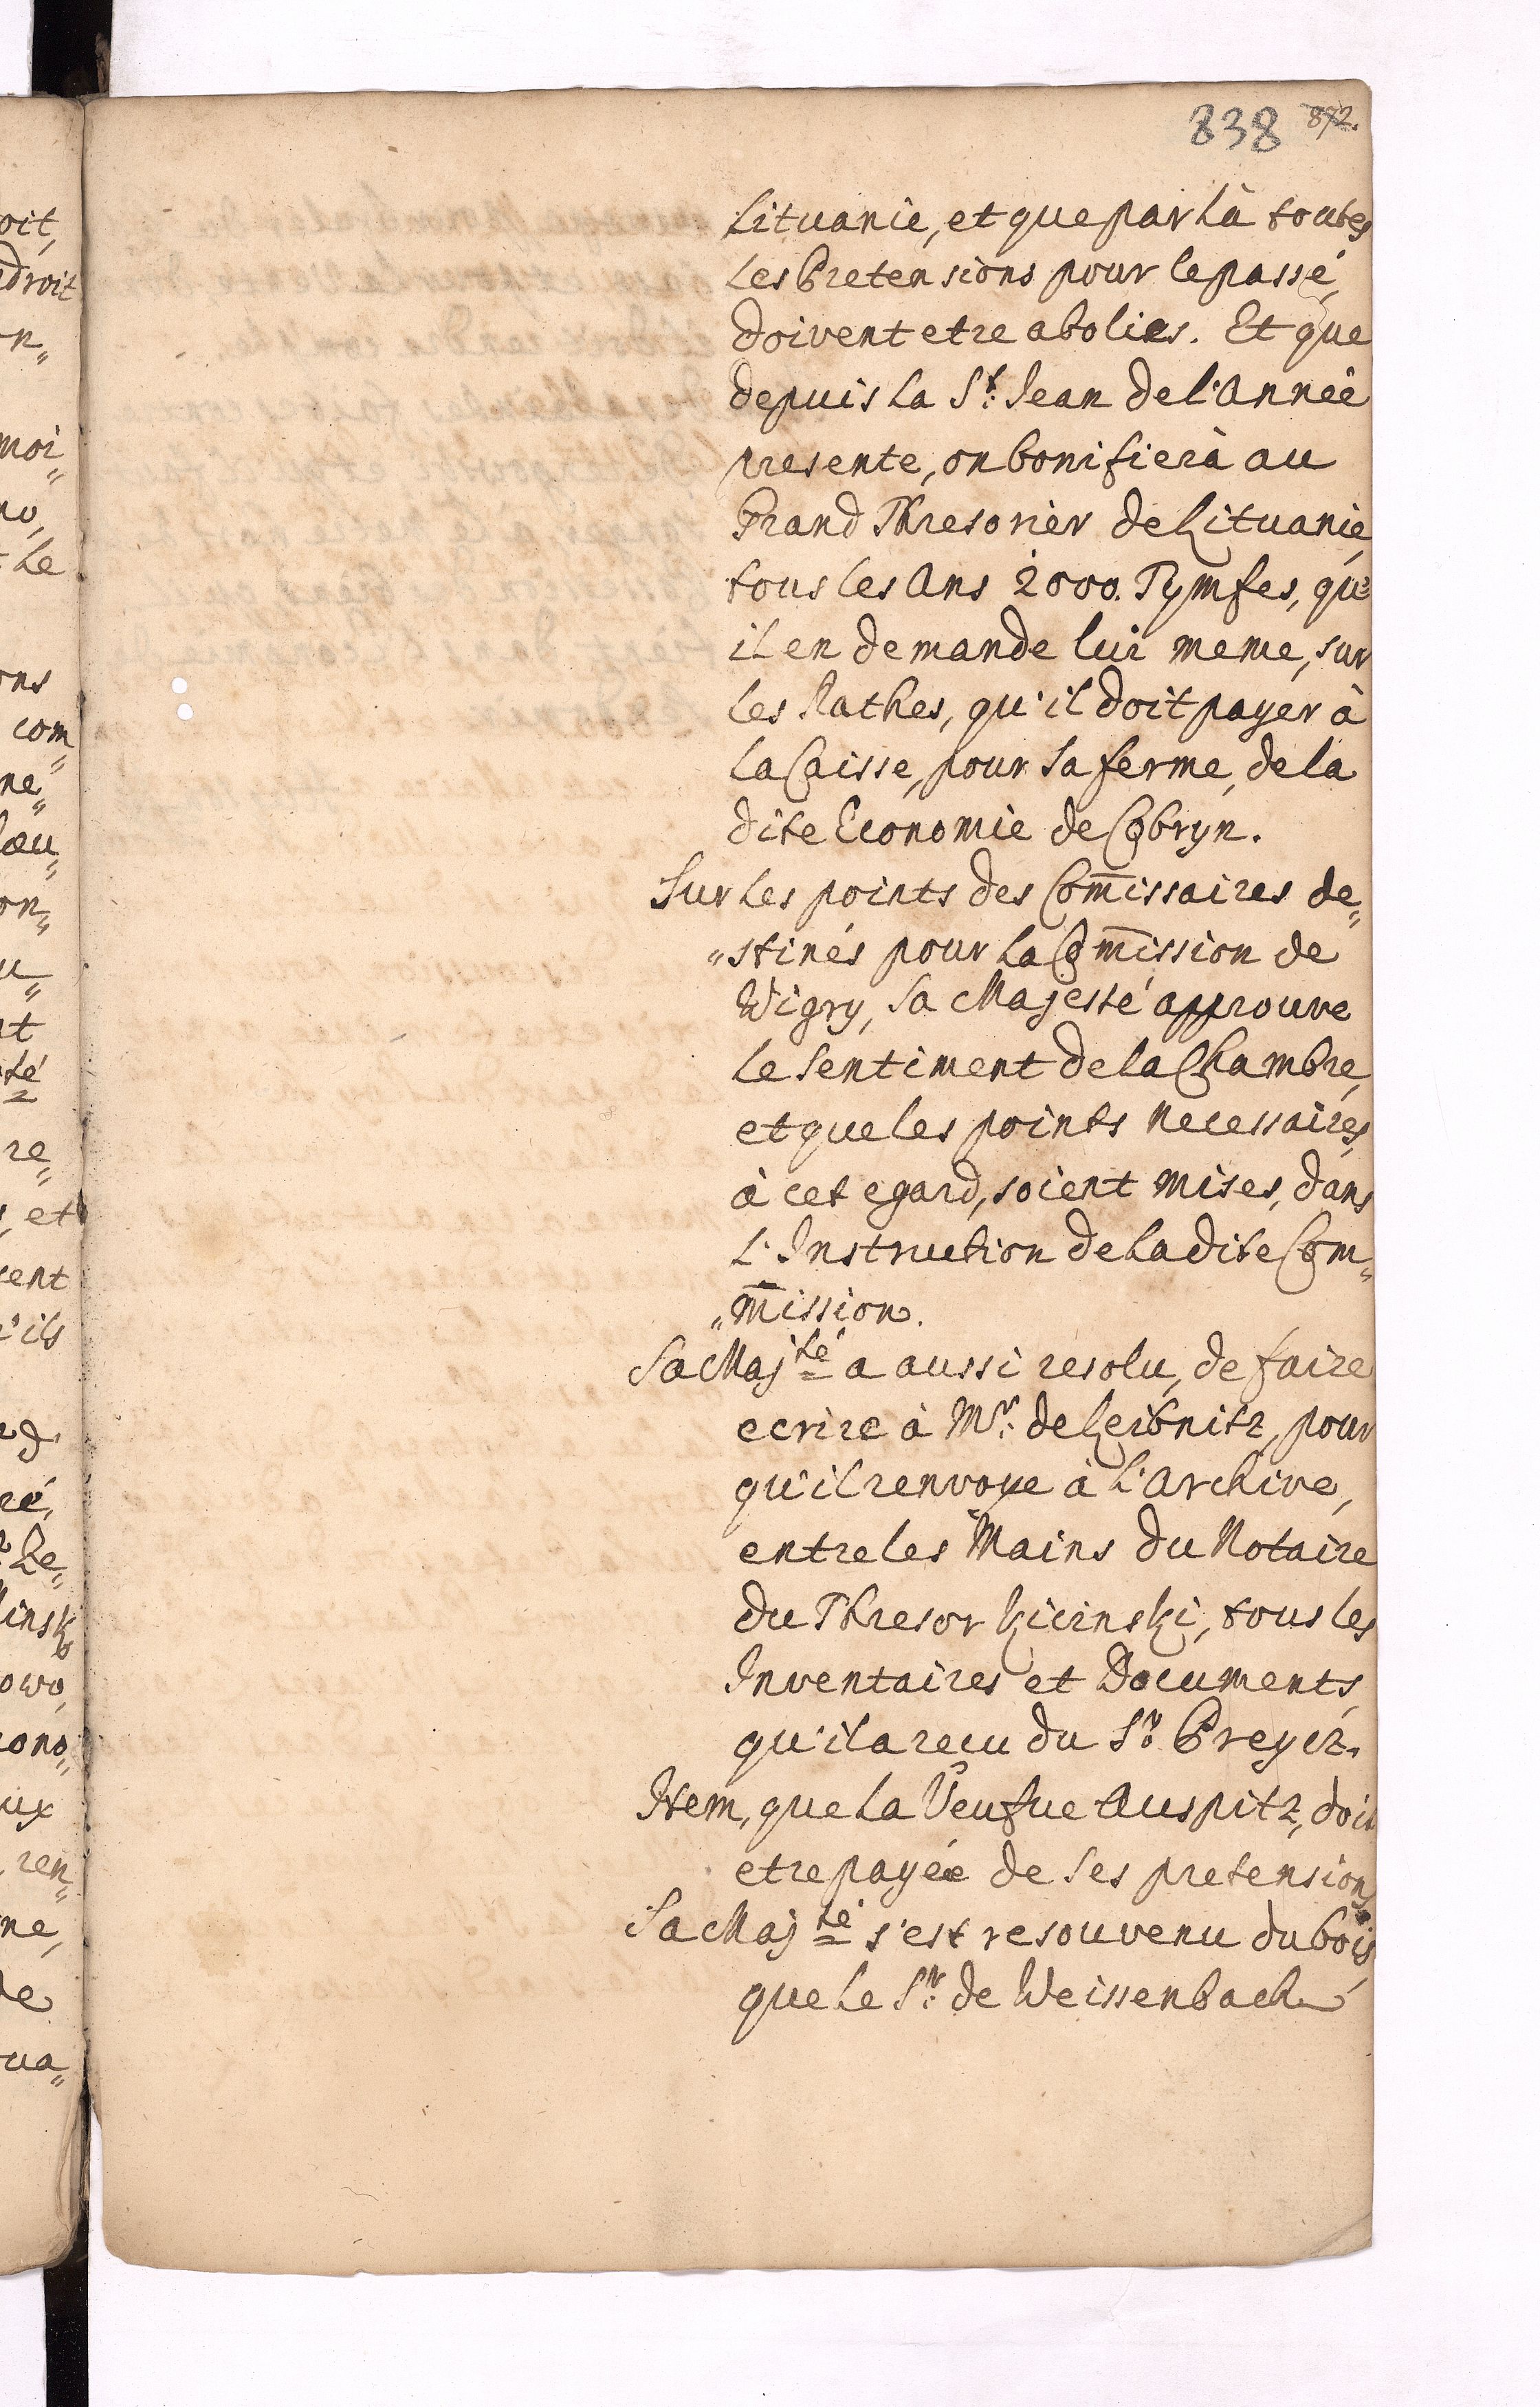 838 872.
Lituanie, et que par là toutes
les Pretensions pour le passé,
doivent etre abolies. Et que
depuis la St: Jean de l'Année
presente, on bonifierà au
Grand Thresorier de Lituanie,
tous les Ans 2000. Tymfes, qu'
il en demande lui meme, sur
les Rathes, qu'il doit payer à
la Caisse, pour sa ferme, de la
dite Economie de Cobryn.
Sur les points des Com̅issaires de„
„stinés pour la Com̅ission de
Wigry, Sa Majesté approuve
le Sentiment de la Chambre,
et que les points necessaires,
à cet egard, soient mises, dans
L'Instruction de la dite Com„
„m̅ission.
Sa Majté a aussi resolu, de faire
ecrire à Mr: de Leibnitz, pour
qu'il renvoye à l'Archive,
entre les Mains du Notaire
du Thresor Kicinski, tous les
Inventaires et Documents,
qu'il a recu du Sr: Preyer.
Item, que la Veufue Auspitz, doit
etre payée de ses pretensions
Sa Majté s'est resouvenu du bois,
que le Sr: de Weissenbach
oit,
droit
n„
moi„
no,
Le
ons
com„
ne„
on„
u„
nt
té
re„
, et
sent
'ils
ré,
Le„
linsk
owo,
cono„
ux
ren„
ne,
de
ua„